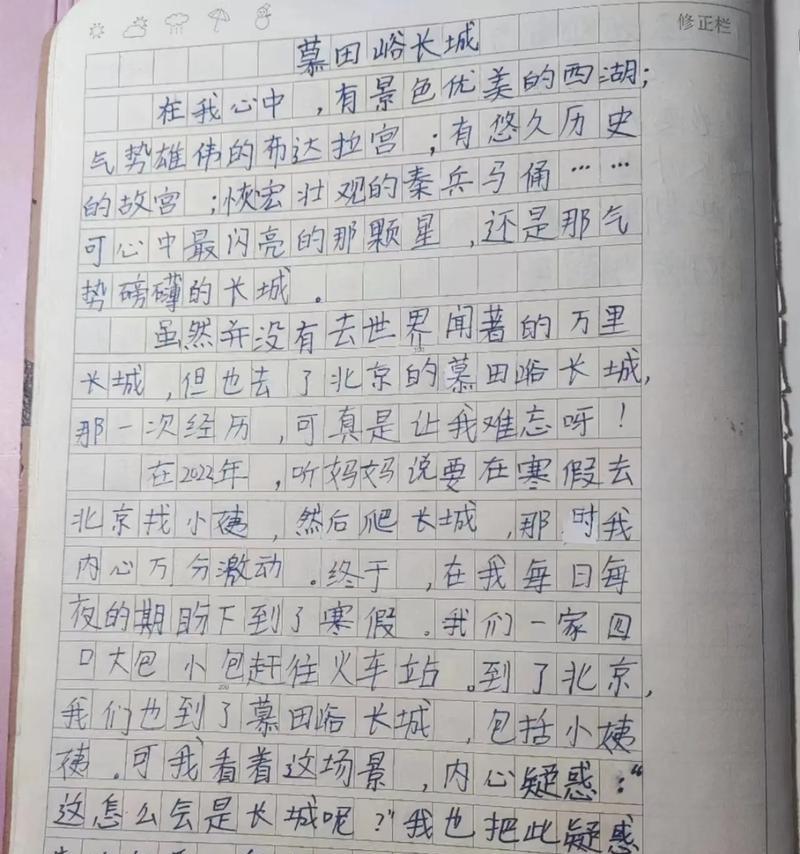 修正栏
慕田峪长城
在我心中，有景色优美的西湖；
气势雄伟的布达拉宫；有悠久历史
的故宫；恢宏壮观的秦兵马俑……
可心中最闪亮的那颗星，还是那气
势磅礴的长城。
虽然并没有去世界闻著的万里
长城，但也去了北京的慕田峪长城，
那一次经历，可真是让我难忘呀！
在2022年，听妈妈说要在寒假去
北京找小姨，然后爬长城，那时我
内心万分激动。终于，在我每日每
夜的期盼下到了寒假。我们一家四
口大包小包赶往火车站。到了北京，
我们也到了慕田峪长城，包括小姨
姨。可我看着这场景，内心疑惑：“
这怎么会是长城呢？”我也把此疑惑